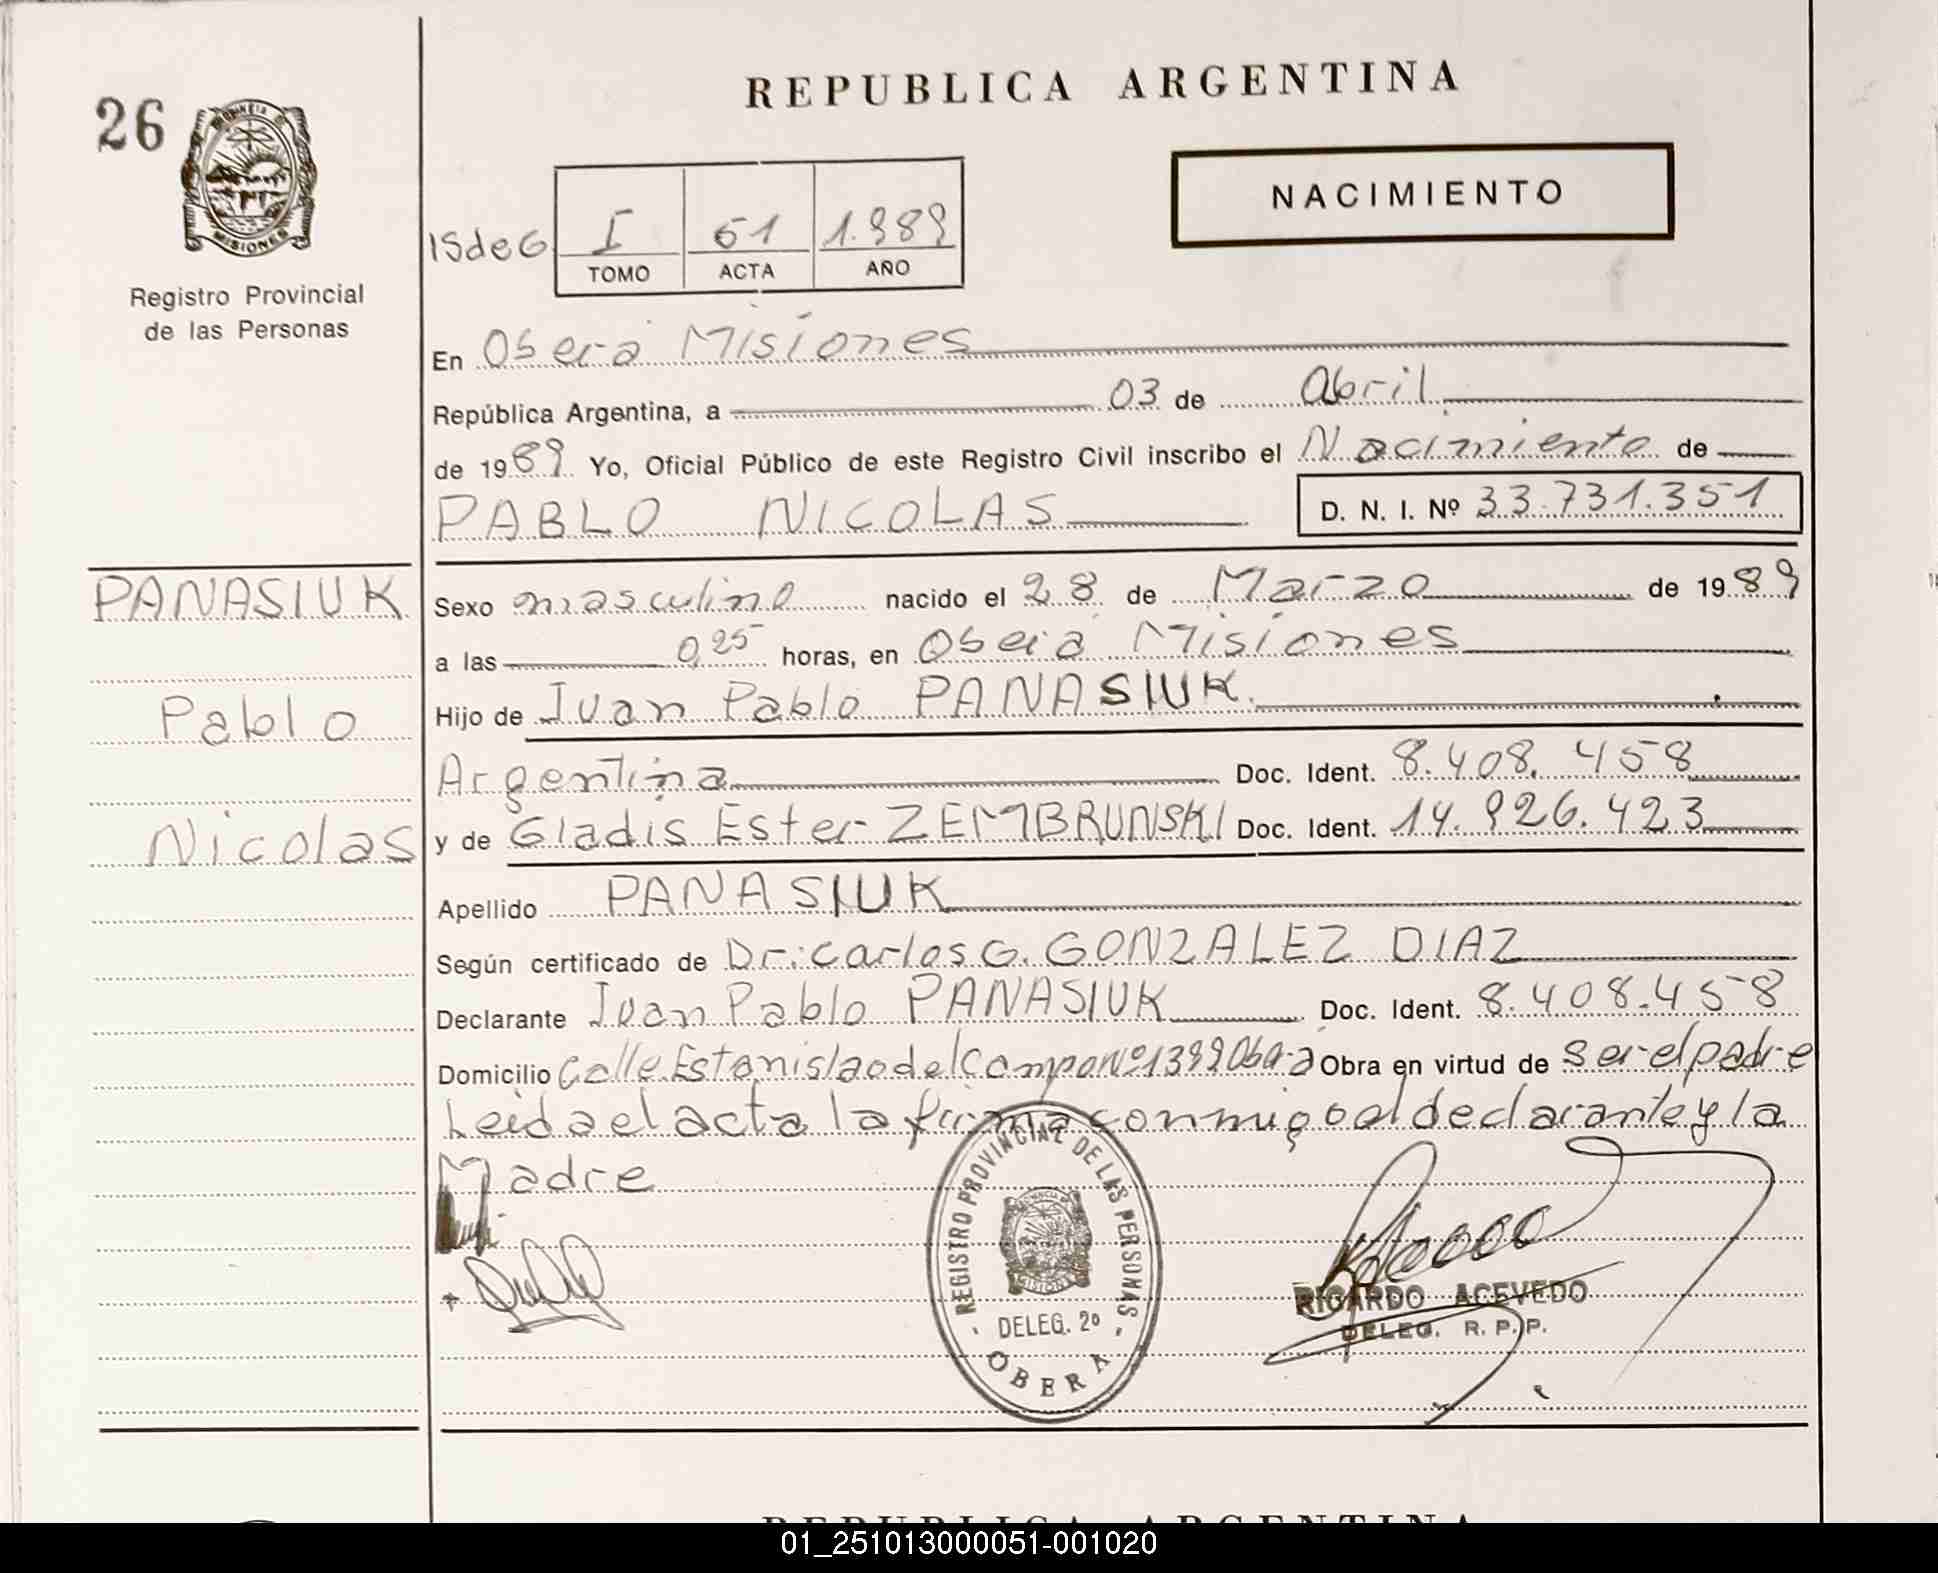 REPUBLICA ARGENTINA
26
PROVINCIA DE
MISIONES
Registro Provincial
de las Personas
NACIMIENTO
ISdeG
I 51 1.989
TOMO ACTA AÑO
En Oberá Misiones
República Argentina, a 03 de Abril
de 1989 Yo, Oficial Público de este Registro Civil inscribo el Nacimiento de
PABLO NICOLAS
D. N. I. Nº 33.731.351
PANASIUK
Pablo
Nicolas
Sexo masculino nacido el 28 de Marzo de 1989
a las 0,25 horas, en Oberá Misiones
Hijo de Juan Pablo PANASIUK.
Argentina Doc. Ident. 8.408.458
y de Gladis Ester ZEMBRUNSKI Doc. Ident. 14.926.423
Apellido PANASIUK
Según certificado de Dr: Carlos G. GONZALEZ DIAZ
Declarante Juan Pablo PANASIUK Doc. Ident. 8.408.458
Domicilio Calle Estanislao del Campo Nº 1399 Obra en virtud de ser el padre
Leida el acta la firma conmigo el declarante y la
Madre
REGISTRO PROVINCIAL DE LAS PERSONAS
MISIONES
DELEG. 2º
OBERA
RICARDO ACEVEDO
DELEG. R. P. P.
REPUBLICA ARGENTINA
01_251013000051-001020